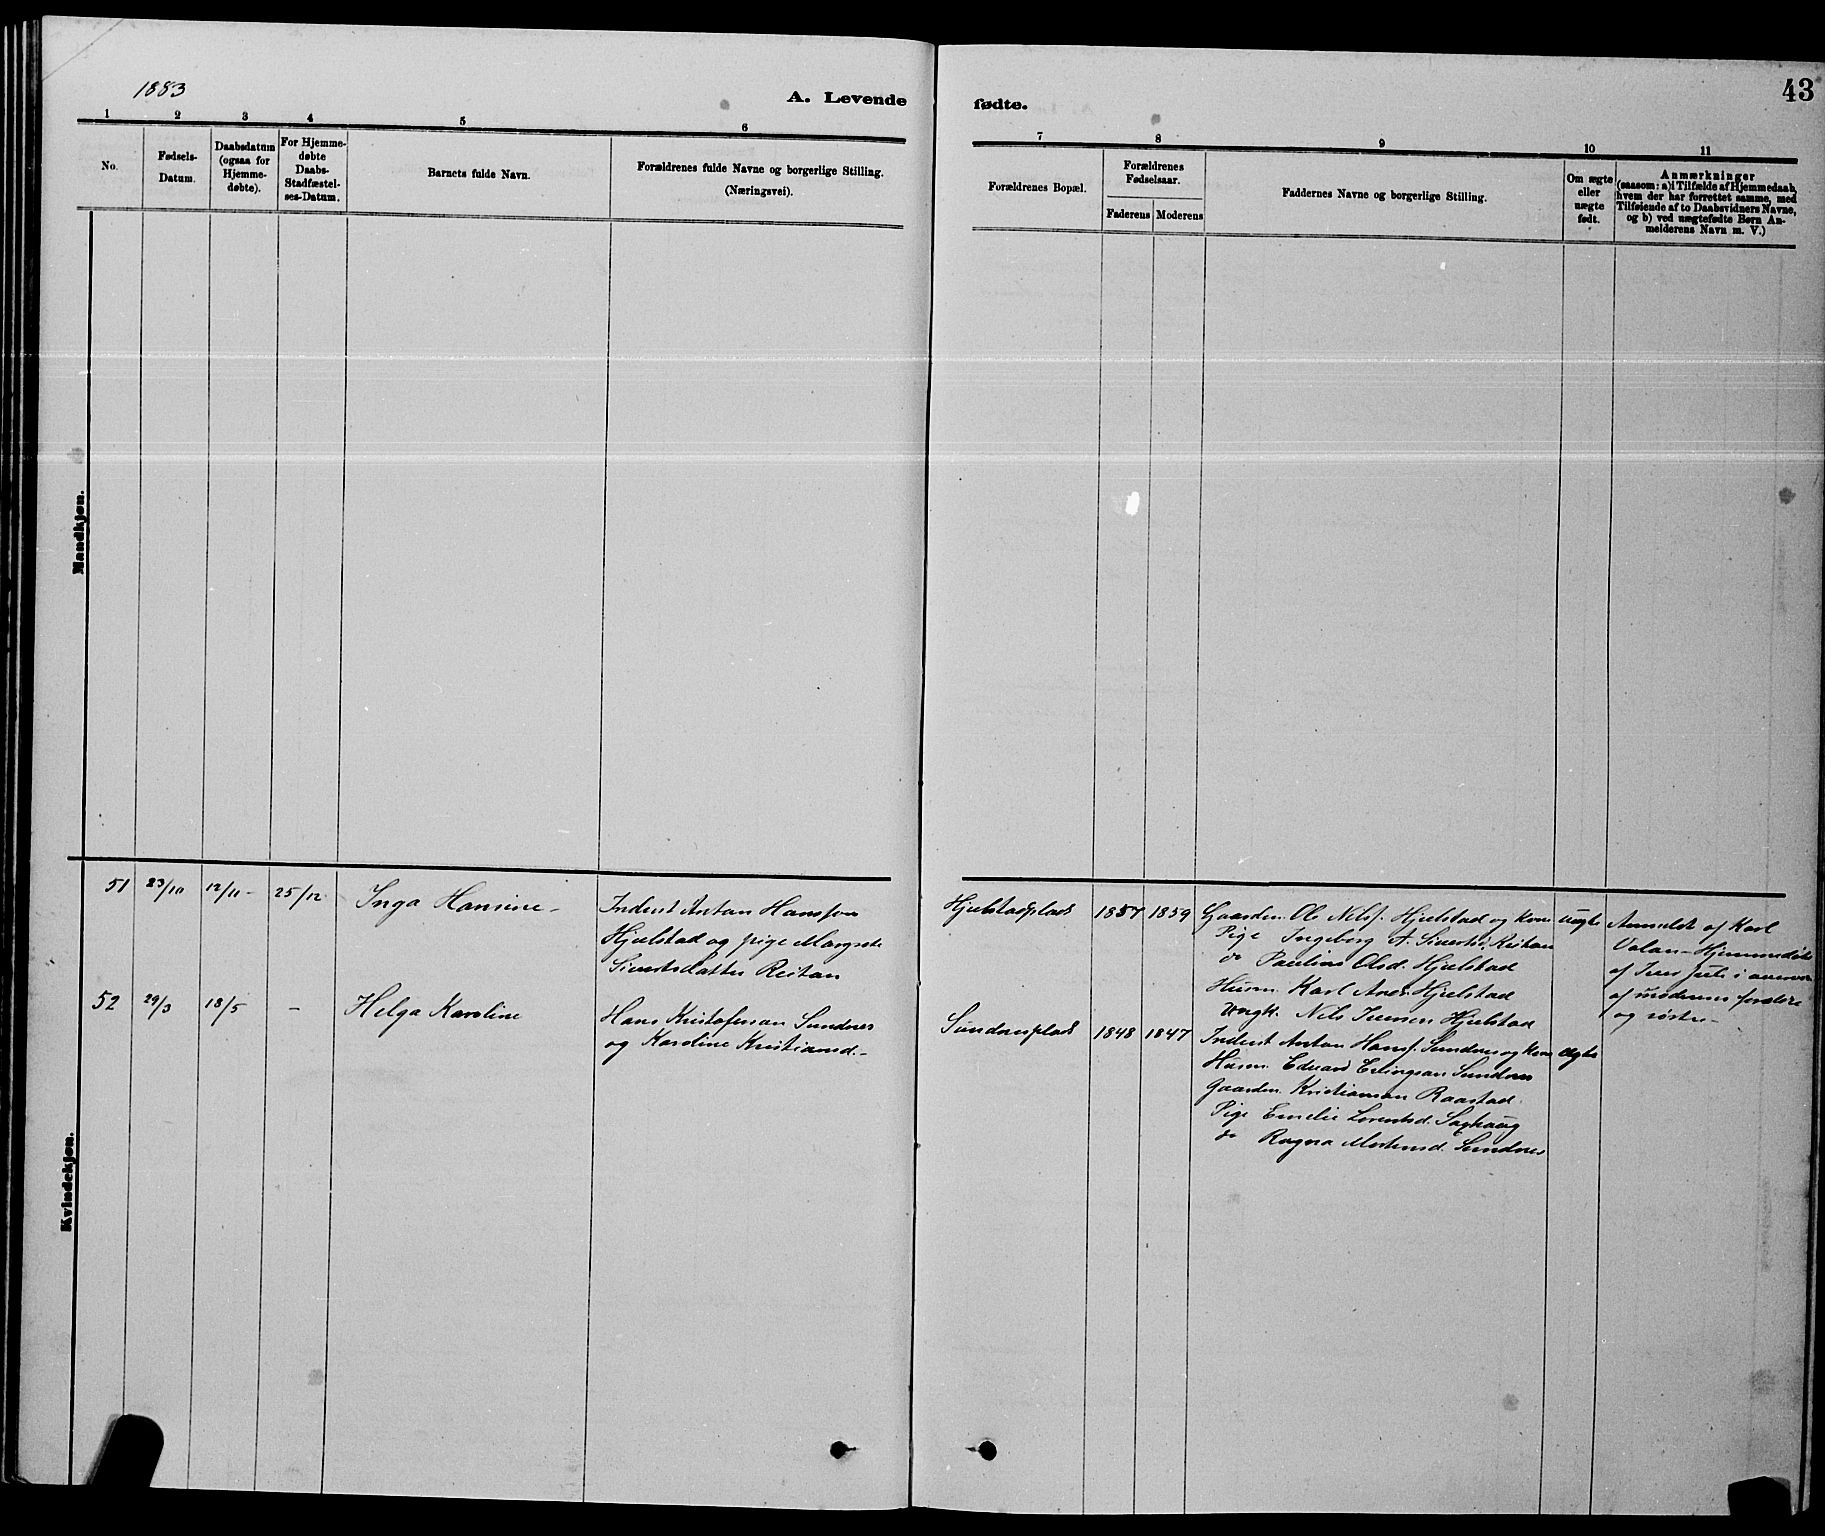 1883
A. Levende
fødte.
43
1 2 3 4 5 6
7 8 9 10 11
No.
Fødsels-
Datum.
Daabsdatum
(ogsaa for
Hjemme-
døbte).
For Hjemme-
døbte
Daabs-
Stadfæstel-
ses-Datum.
Barnets fulde Navn.
Forældrenes fulde Navne og borgerlige Stilling.
(Næringsvei).
Forældrenes Bopæl.
Forældrenes
Fødselsaar.
Faderens Moderens
Faddernes Navne og borgerlige Stilling.
Om ægte
eller
uægte
født.
Anmærkninger
(saasom: a) i Tilfælde af Hjemmedaab,
hvem der har forrettet samme, med
Tilføiende af to Daabsvidners Navne,
og b) ved uægtefødte Børn An-
melderens Navn m. V.)
Mandkjøn.
Kvindekjøn.
51 23/10 12/11 - 25/12 Inga Hansine -
Inderst Anton Hansson
Hjelstad og pige Margrete
Sivertsdatter Reitan
Hjelstadplads 1857 1859
Gaardm. Ole Nilss. Hjelstad og kone
Pige Ingeborg A. Sivertsd. Reitan
do Pauline Olsd. Hjelstad
Husm. Karl And. Hjelstad
Ungk. Nils Iversen Hjelstad
uægte
Anmeldt af Karl
Valan - Hjemmedøbt
af
af moderens foreldre
og søstre -
52 29/3 18/5 - Helga Karoline
Hans Kristofersen Sundnes
og Karoline Kristiansd. -
Sundnesplads 1848 1847
Inderst Anton Hanss. Sundnes og kone
Husm. Eduard Erlingsen Sundnes
Gaardm. Kristiansen Raastad.
Pige Emelie Lorentsd. Saxhaug
do Ragna Mortensd. Sundnes
ægte